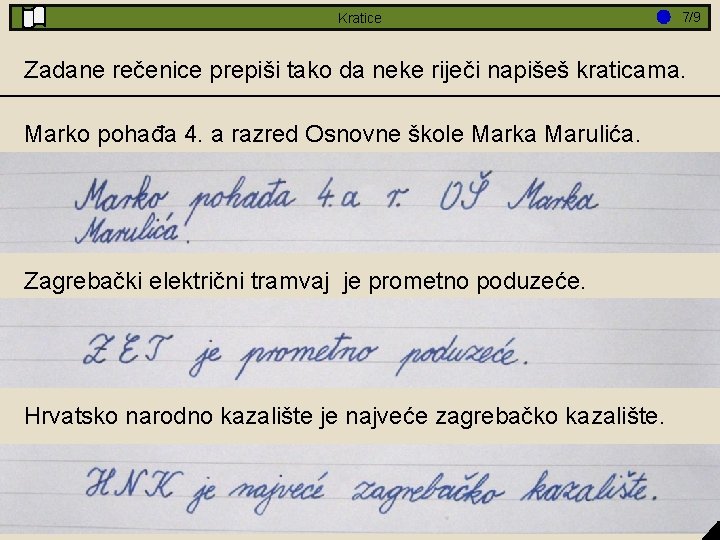 Kratice
7/9
Zadane rečenice prepiši tako da neke riječi napišeš kraticama.
Marko pohađa 4. a razred Osnovne škole Marka Marulića.
Marko pohađa 4. a r. OŠ Marka
Marulića.
Zagrebački električni tramvaj je prometno poduzeće.
ZET je prometno poduzeće.
Hrvatsko narodno kazalište je najveće zagrebačko kazalište.
HNK je najveće zagrebačko kazalište.